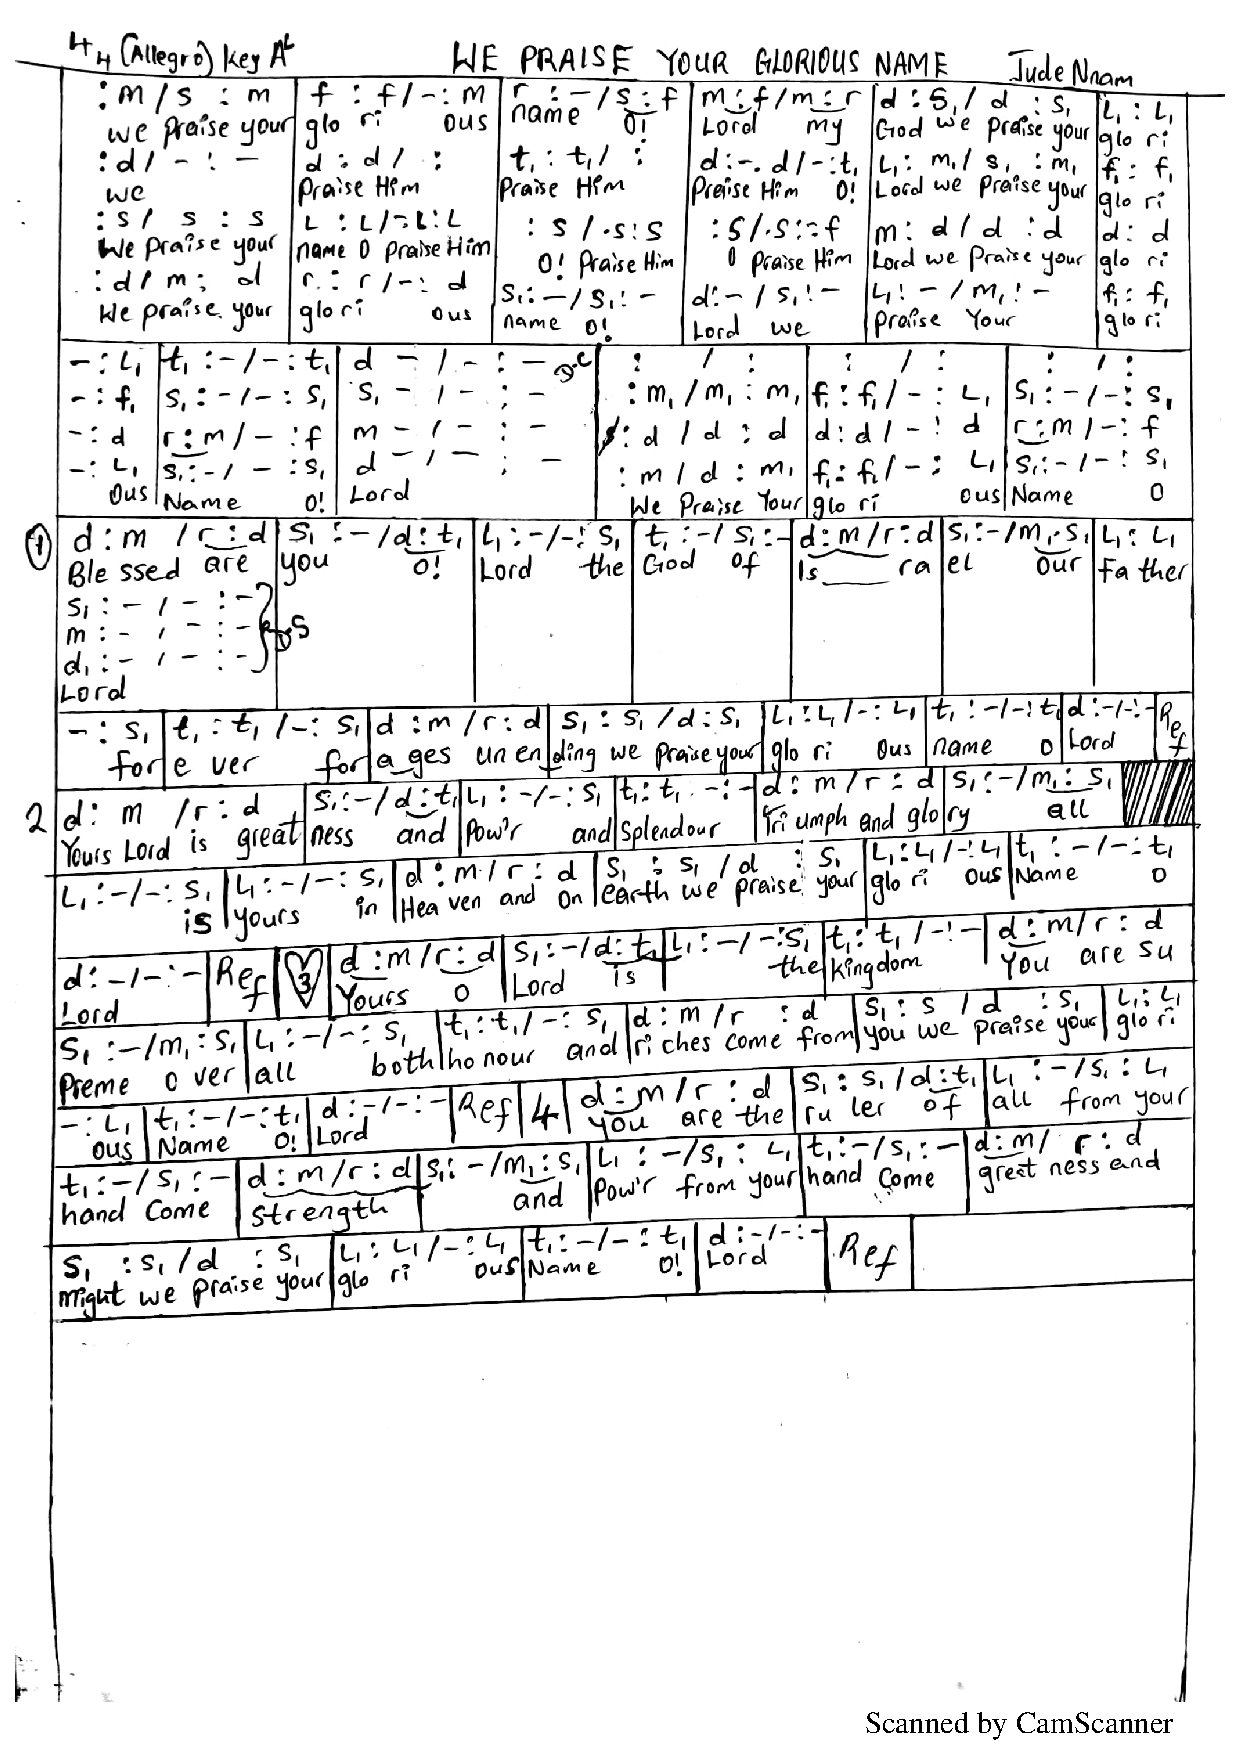 4/4 (Allegro) Key Ab WE PRAISE YOUR GLORIOUS NAME Jude Nnam
: m / s : m | f : f / - : m | r : - / s : f | m : f / m : r | d : s, / d : s, | L, : L,
we praise your | glo ri ous | name O! | Lord my | God we praise your | glo ri
: d / - : - | d : d / : | t, : t, / : | d : -. d / - : t, | L, : m, / s, : m, | f, : f,
we | Praise Him | Praise Him | Praise Him O! | Lord we praise your | glo ri
: s / s : s | L : L / - : L : L | : s / .s : s | : s / .s : - : f | m : d / d : d | d : d
We praise your | name O praise Him | O! Praise Him | O Praise Him | Lord we praise your | glo ri
: d / m : d | r : r / - : d | s, : - / s, : - | d : - / s, : - | L, : - / m, : - | f, : f,
We praise your | glo ri ous | name O! | Lord we | Praise Your | glo ri
- : L, | t, : - / - : t, | d - / - : - D.C | : / : | : / : | : / :
- : f, | s, : - / - : s, | s, - / - : - | : m, / m, : m, | f, : f, / - : L, | s, : - / - : s,
- : d | r : m / - : f | m - / - : - | : d / d : d | d : d / - : d | r : m / - : f
- : L, | s, : - / - : s, | d - / - : - | : m / d : m, | f, : f, / - : L, | s, : - / - : s,
ous | Name O! | Lord | We Praise Your | glo ri ous | Name O
1 d : m / r : d | s, : - / d : t, | L, : - / - : s, | t, : - / s, : - | d : m / r : d | s, : - / m, . s, | L, : L,
Ble ssed are | you O! | Lord the | God of | Is ___ ra | el our | fa ther
s, : - / - : -
m : - / - : - } D.S
d, : - / - : -
Lord
- : s, | t, : t, / - : s, | d : m / r : d | s, : s, / d : s, | L, : L, / - : L, | t, : - / - : t, | d : - / - : - | Ref
for | e ver for | a ges un en | ding we praise your | glo ri ous | name O | Lord
2 d : m / r : d | s, : - / d : t, | L, : - / - : s, | t, : t, - : - | d : m / r : d | s, : - / m, : s,
Yours Lord is great | ness and | Pow'r and | Splendour | Tri umph and glo | ry all
L, : - / - : s, | L, : - / - : s, | d : m / r : d | s, : s, / d : s, | L, : L, / - : L, | t, : - / - : t,
is | yours in | Hea ven and on | earth we praise your | glo ri ous | Name O
d : - / - : - | Ref | 3 | d : m / r : d | s, : - / d : t, | L, : - / - : s, | t, : t, / - : - | d : m / r : d
Lord | Yours O | Lord is | the | kingdom | You are su
s, : - / m, : s, | L, : - / - : s, | t, : t, / - : s, | d : m / r : d | s, : s / d : s, | L, : L,
Preme O ver | all both | ho nour and | ri ches come from | you we praise your | glo ri
- : L, | t, : - / - : t, | d : - / - : - | Ref | 4 | d : m / r : d | s, : s, / d : t, | L, : - / s, : L,
ous | Name O! | Lord | you are the | ru ler of | all from your
t, : - / s, : - | d : m / r : d | s, : - / m, : s, | L, : - / s, : L, | t, : - / s, : - | d : m / r : d
hand Come | strength | and | Pow'r from your | hand Come | great ness and
s, : s, / d : s, | L, : L, / - : L, | t, : - / - : t, | d : - / - : - | Ref
might we praise your | glo ri ous | Name O! | Lord
Scanned by CamScanner